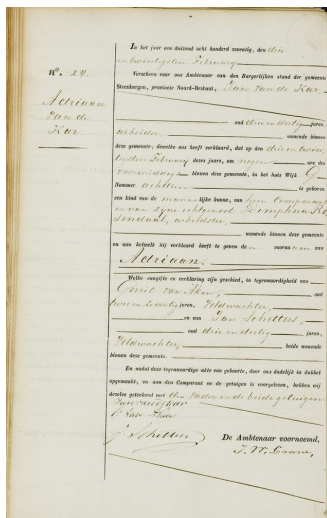 N°. 27.
Adriaan
van de
Kar
In het jaar een duizend acht honderd zeventig, den drie
en twintigsten February
Verscheen voor ons Ambtenaar van den Burgerlijken stand der gemeente
Steenbergen, provincie Noord-Brabant, Jan van de Kar,
oud drie en dertig jaren,
arbeider, wonende binnen
deze gemeente, dewelke ons heeft verklaard, dat op den drie en twin
tigsten February dezes jaars, om negen ure des
voormiddags binnen deze gemeente, in het huis Wijk G
Nummer achttien is geboren
een kind van de mannelijke kunne, van hem Comparant
en van zijne echtgenoot
arbeidster,
wonende binnen deze gemeente
en aan hetwelk hij verklaard heeft te geven den voornaam van
Adriaan.
Welke aangifte en verklaring zijn geschied, in tegenwoordigheid van
oud
twee en zeventig jaren, Veldwachter,
en van Jan Schetters,
oud drie en dertig jaren,
Veldwachter, beide wonende
binnen deze gemeente.
En nadat deze tegenwoordige akte van geboorte, door ons dadelijk in dubbel
opgemaakt, en aan den Comparant en de getuigen is voorgelezen, hebben wij
dezelve geteekend met den vader en de beide getuigen.
J Schetters
De Ambtenaar voornoemd,